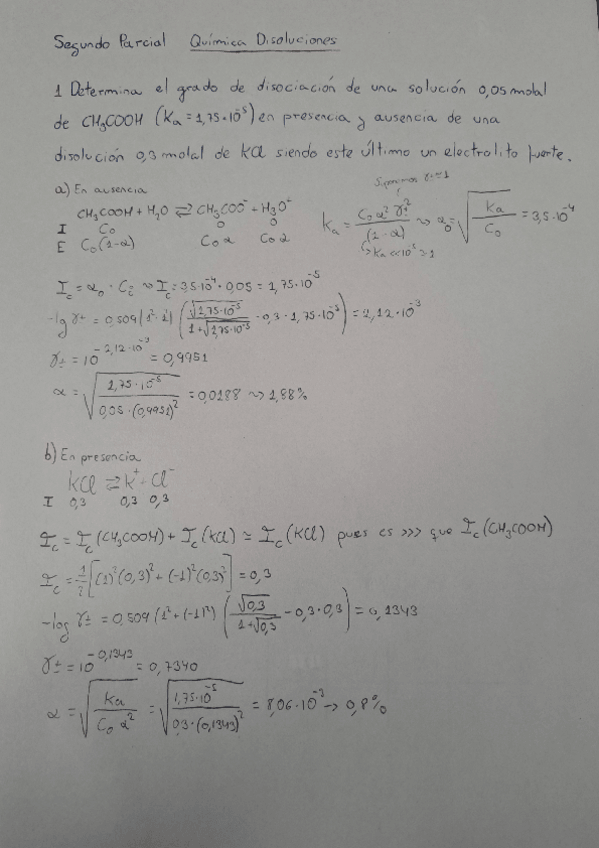 Segundo Parcial Química Disoluciones
1 Determina el grado de disociación de una solución 0,05 molal
de CH₃COOH (Ka = 1,75·10⁻⁵) en presencia y ausencia de una
disolución 0,3 molal de KCl siendo este último un electrolito fuerte.
a) En ausencia
CH₃COOH + H₂O ⇌ CH₃COO⁻ + H₃O⁺
I C₀ 0 0
E C₀(1-α) C₀α C₀α
γ± = 1
Ka = C₀ α² γ±² / (1-α) ⇝ α₀ = √(Ka / C₀) = 3,5·10⁻⁴
↳ Ka << 10⁻³ ≃ 1
I_c = α₀ · C_i ⇝ I_c = 3,5·10⁻⁴ · 0,05 = 1,75·10⁻⁵
-log γ± = 0,509 (1²·1²) (√(1,75·10⁻⁵) / (1+√(1,75·10⁻⁵)) - 0,3 · 1,75·10⁻⁵) = 2,12·10⁻³
γ± = 10^(-2,12·10⁻³) = 0,9951
α = √(1,75·10⁻⁵ / (0,05·(0,9951)²)) = 0,0188 ⇝ 1,88%
b) En presencia
KCl ⇌ K⁺ + Cl⁻
I 0,3 0,3 0,3
I_c = I_c (CH₃COOH) + I_c (KCl) ≃ I_c (KCl) pues es >>> que I_c (CH₃COOH)
I_c = 1/2 [(1)²(0,3)² + (-1)²(0,3)²] = 0,3
-log γ± = 0,509 (1² + (-1)²) (√0,3 / (1+√0,3) - 0,3·0,3) = 0,1343
γ± = 10^(-0,1343) = 0,7340
α = √(Ka / (C₀ α²)) = √(1,75·10⁻⁵ / (0,3·(0,1343)²)) = 8,06·10⁻³ → 0,8%